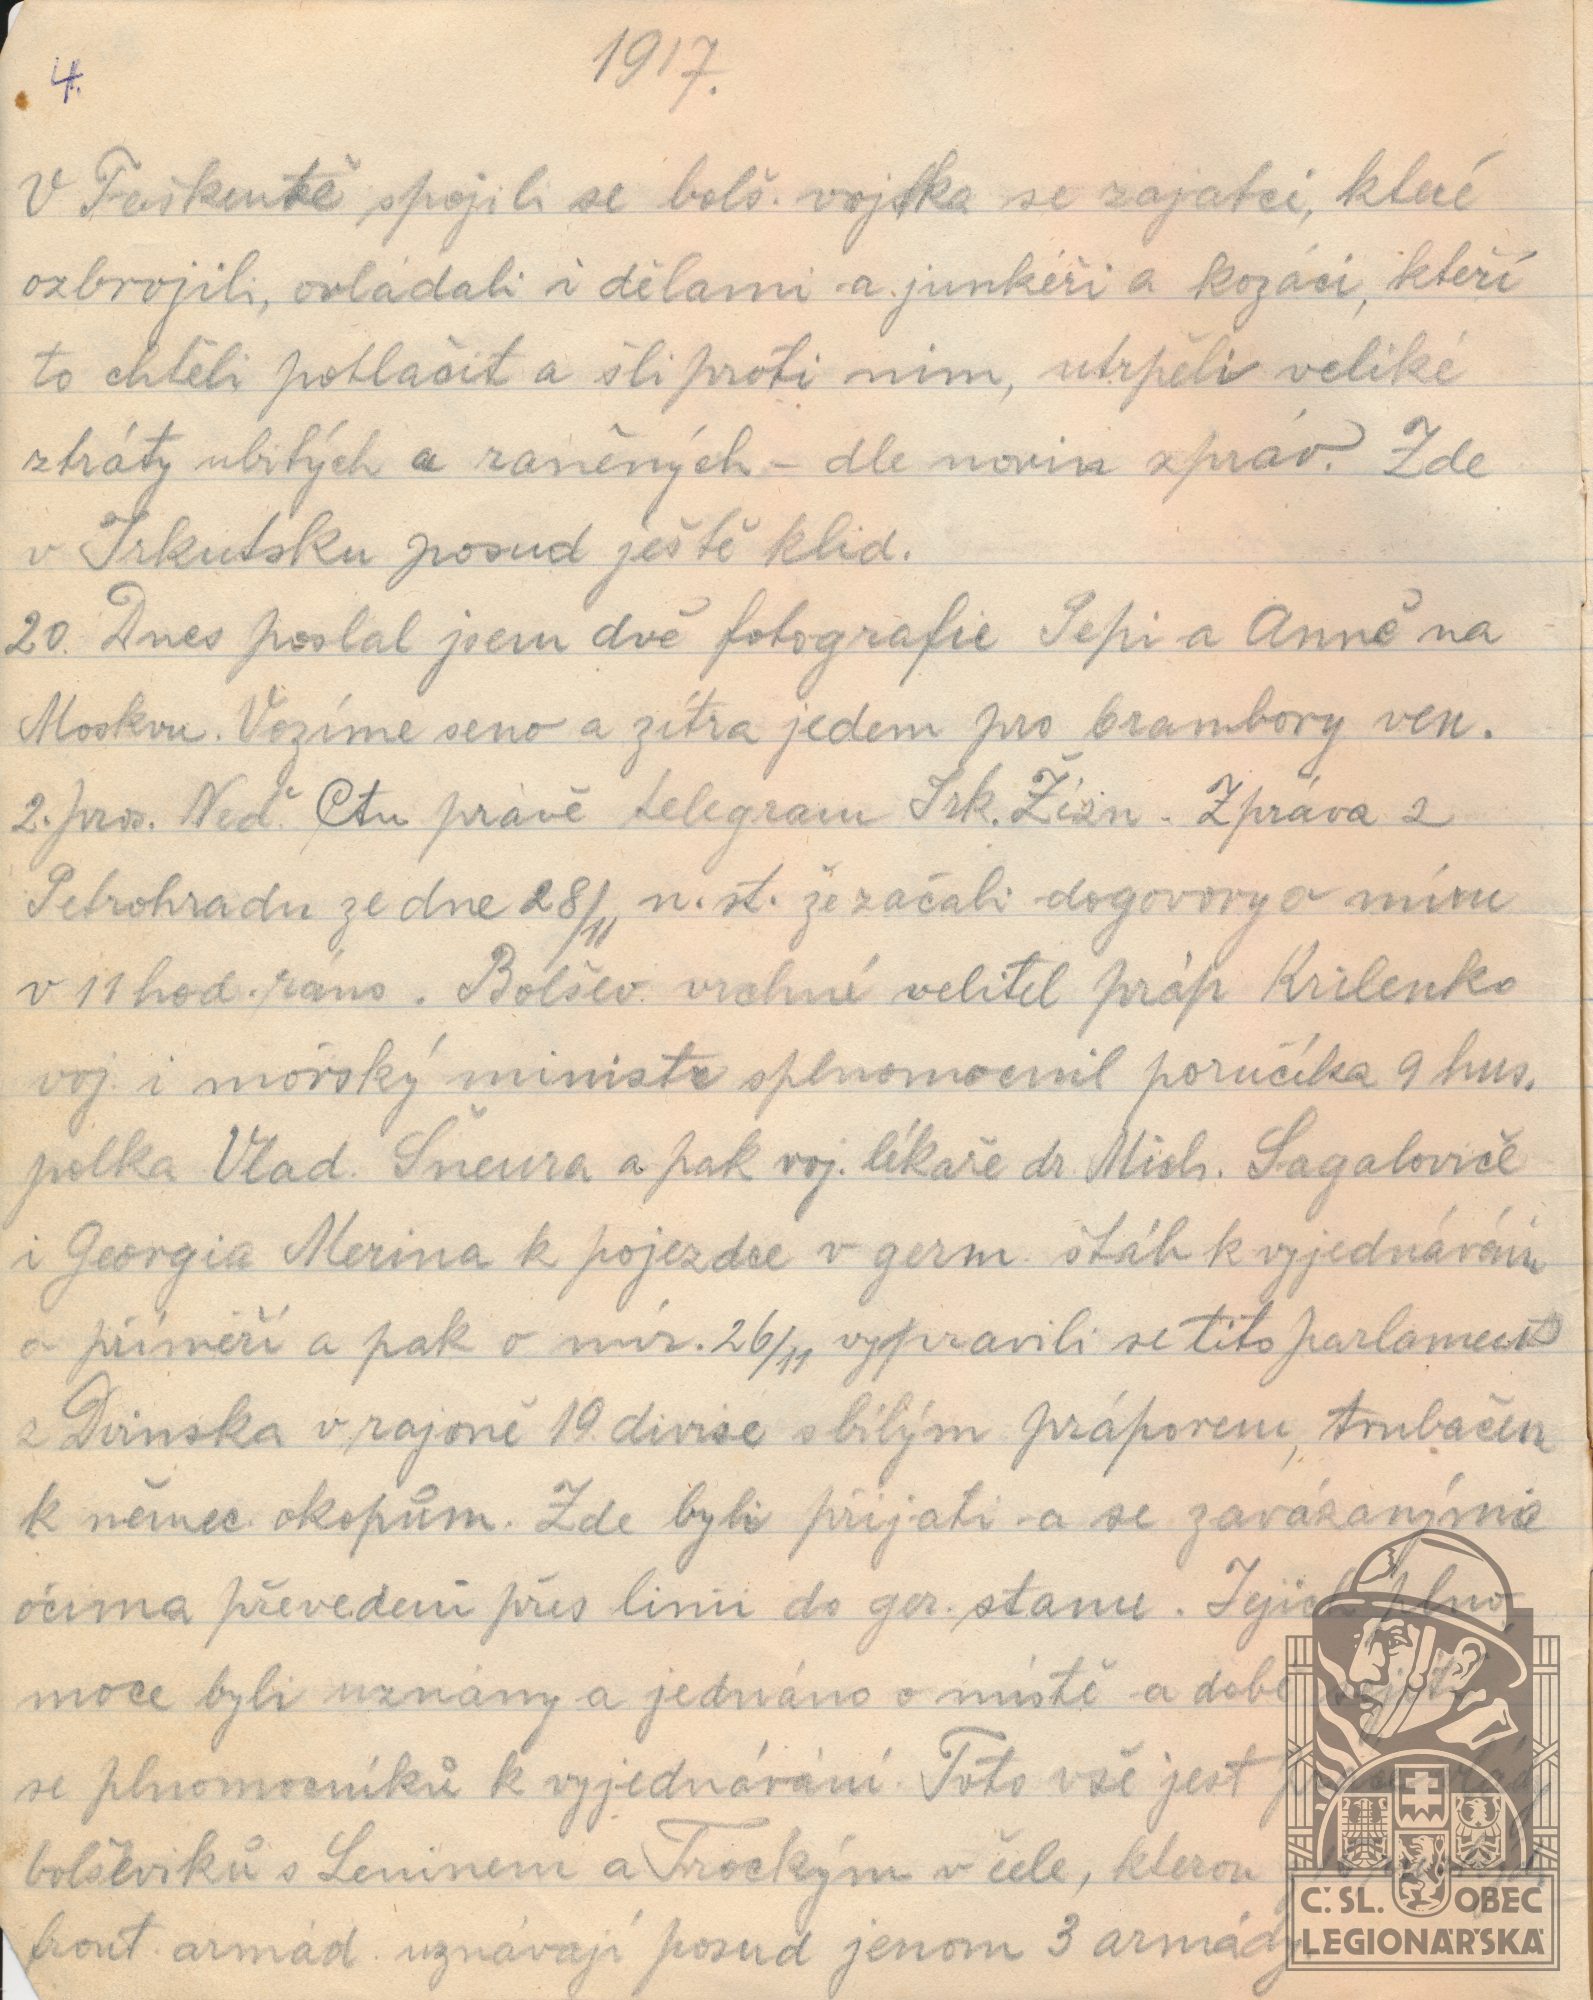 4.
1917.
V Taškentě spojili se bolš. vojska se zajatci, které
ozbrojili, ovládali i dělami a junkéři a kozáci, kteří
to chtěli potlačit a šli proti nim, utrpěli veliké
ztráty ubitých a raněných – dle novin zpráv. Zde
v Irkutsku posud ještě klid.
20. Dnes poslal jsem dvě fotografie Pepi a Anně na
Moskvu. Vozíme seno a zítra jedem pro brambory ven.
2. pros. Neď. Čtu právě telegram Irk. Žizn. Zpráva z
Petrohradu ze dne 28/11 n. st. že začali dogovory o míru
v 11 hod. ráno. Bolšev. vrchní velitel práp Krilenko
voj. i mořský ministr splnomocnil poručíka 9 hus.
polka Vlad. Šneura a pak voj. lékaře dr Mich. Sagaloviče
i Georgia Merina k pojezdce v germ. štáb k vyjednávání
o příměří a pak o mír. 26/11 vypravili se tito parlament
z Dvinska v rajoně 19 divise s bílým práporem, trubačem
k němec. okopům. Zde byli přijati a se zavázanýma
očima převedeni přes linii do ger. stanu. Jejich plno
moce byli uznány a jednáno o místě a době
se plnomocníků k vyjednávání. Toto vše jest
bolševiků s Leninem a Trockým v čele, kterou
front. armád. uznávají posud jenom 3 armády
Č. SL. OBEC
LEGIONÁŘSKÁ